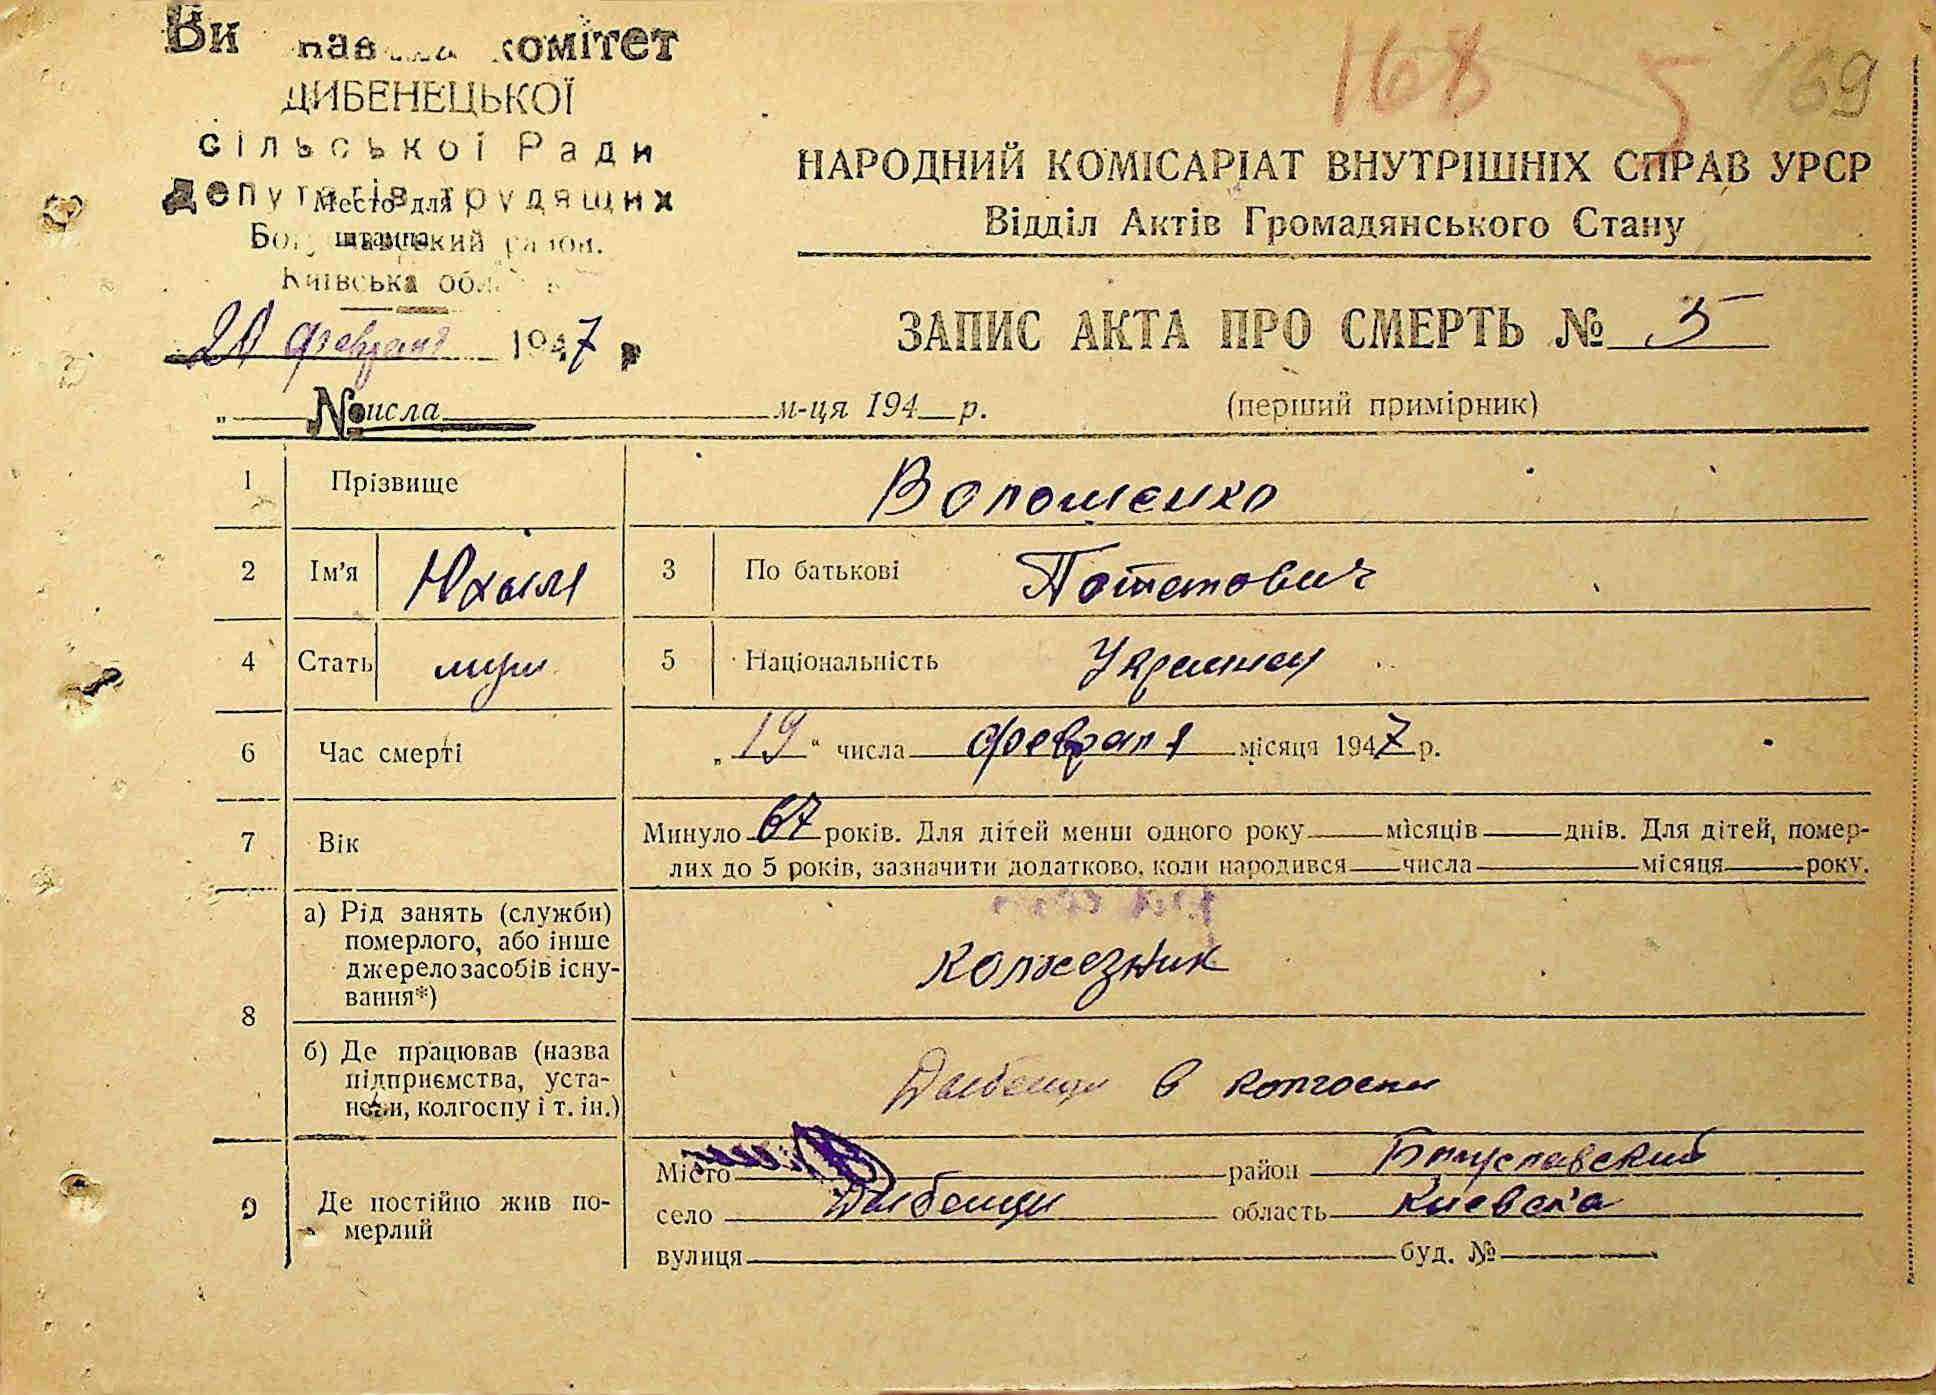 168 5 169
комітет
ДИБЕНЕЦЬКОЇ
сільської Ради
депутатів трудящих
Место для
штампа
Київська
НАРОДНИЙ КОМІСАРІАТ ВНУТРІШНІХ СПРАВ УРСР
Відділ Актів Громадянського Стану
февраля 1947 р
ЗАПИС АКТА ПРО СМЕРТЬ № 5
„ числа м-ця 194 р.
№
(перший примірник)
1 Прізвище Волошенко
2 Ім'я Юхым 3 По батькові Потапович
4 Стать муж 5 Національність
6 Час смерті „19“ числа февраля місяця 1947 р.
7 Вік Минуло 67 років. Для дітей менш одного року місяців днів. Для дітей, помер-
лих до 5 років, зазначити додатково, коли народився числа місяця року.
8 а) Рід занять (служби)
померлого, або інше
джерело засобів існу-
вання*)
колхозник
б) Де працював (назва
підприємства, уста-
нови, колгоспу і т. ін.)
Дыбенци в колгоспи
9 Де постійно жив по-
мерлий
Місто район Богуславский
село Дыбенци область Киевска
вулиця буд. №